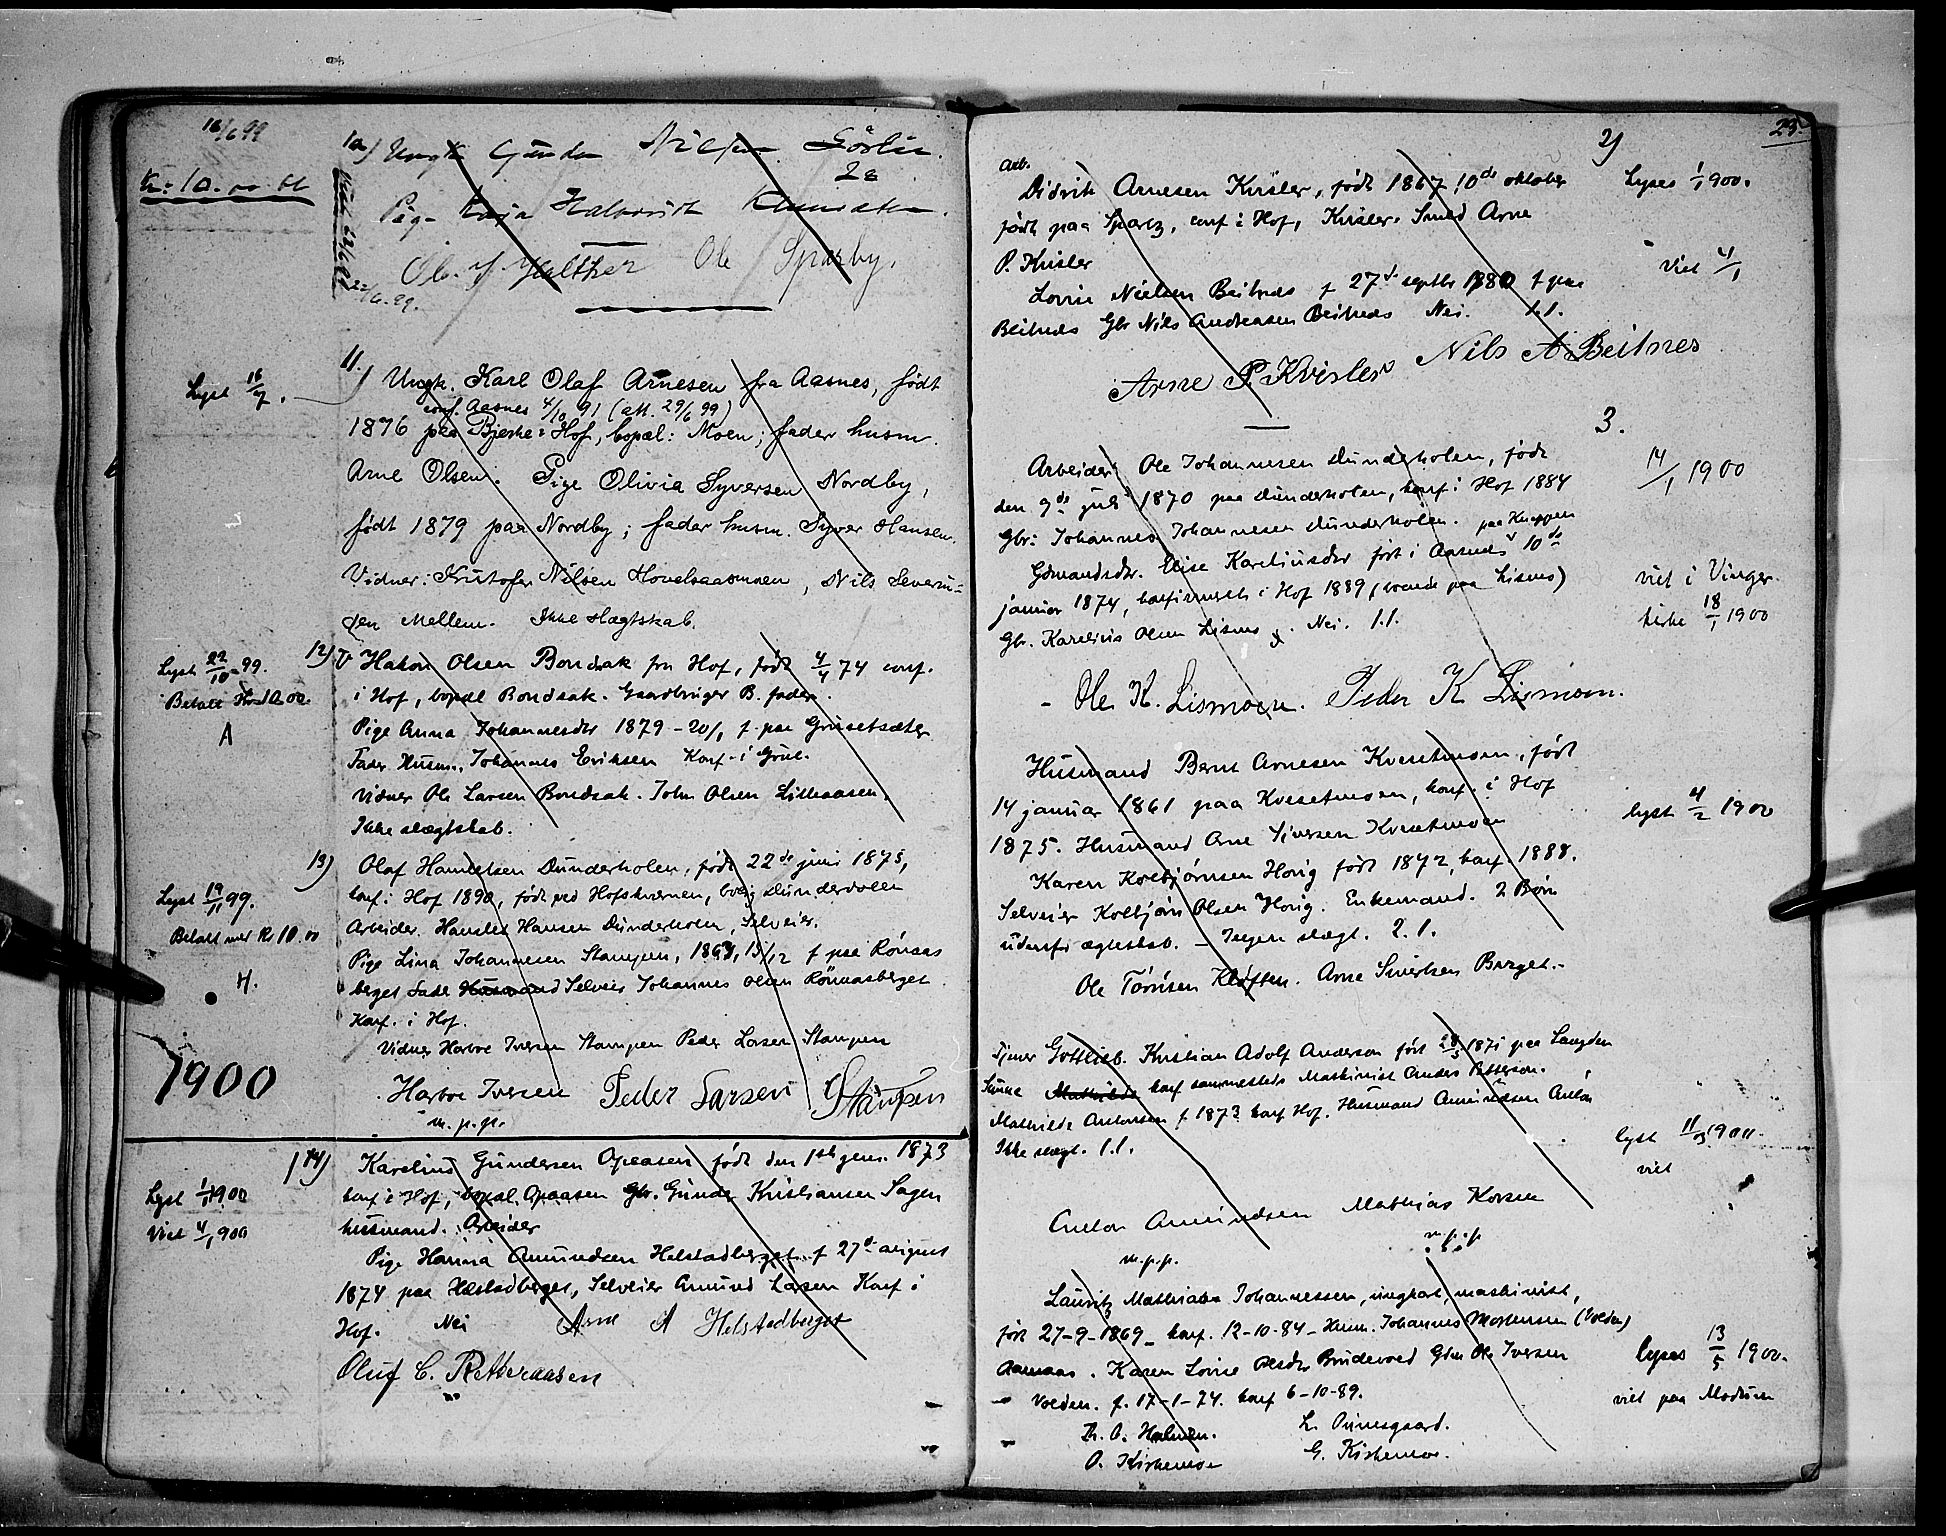 16/6 99
Kr 10.00 bl
10) Ungk Gunder Nilsen
Pige Kaja Halvorsdt
Ole Sparby.
22/6.99.
Lyst 16/7.
11.) Ungk. Karl Olaf Arnesen fra Aasnes, født
conf. Aasnes 4/10 91 (att. 29/6 99)
1876 paa Bjerke i Hof, bopæl: Moen; fader husm.
Arne Olsen. Pige Olivia Syversen Nordby,
født 1879 paa Nordby; fader husm. Syver Hansen.
Vidner: Kristofer Nilsen Hovelsaasmoen, Nils Severin-
sen Mellem. Ikke slægtskab.
Lyst 22/10 99.
Betalt Kr 10.00.
A
12) Hakon Olsen Bondsak fra Hof, født 4/4 74 conf.
i Hof, bopæl Bondsak. Gaardbruger B. fader.
Pige Anna Johannesdtr 1879 - 20/1 f. paa Grinsetsæter
Fader Husm. Johannes Eriksen Konf. i Grue.
Vidner Ole Larsen Bondsak. John Olsen Lilleaasen.
Ikke slægtskab.
Lyst 19/11 99.
Betalt med Kr 10.00
H.
13) Olaf Hansen Dunderholen, født 22de juni 1875,
konf i Hof 1890, født ved Hofskvernen, bolig Dunderholen
Arbeider. Hans Hansen Dunderholen, Selveier.
Pige Lina Johannesen Stampen, 15/12 f paa Rønaas
berget Fader Husmand Selveier Johannes Olsen Rönnaasberget
Konf. i Hof.
Vidner Harboe Iversen Stampen Peder Larsen Stampen
Harboe Iversen Peder Larsen Stampen
m.p.p.
1900
Lyst 1/1 1900
Viet 4/1 900
14) Karelius Gundersen Opaasen født den 1ste jan. 1873
konf i Hof, bopæl Opaasen Gbr. Gunder Kristiansen Sagen
husmand. Arbeider
Pige Hanna Amundsen Helstadberget f 27de august
1874 paa Helstadberget, Selveier Amund Larsen Konf i
Hof. Nei Arne A Helstadberget
Oluf C. Retteraasen
23.
2)
Arb.
Didrik Arnesen Kvisler, født 1867 10de oktober
født paa conf i Hof, Kvisler. Smed Arne
P. Kvisler
Lovise Nielsen Beitnes f 27de septbr 1880 f paa
Beitnes Gbr Nils Andreasen Beitnes Nei. 1.1.
Arne P. Kvisler Nils A Beitnes
Lyses 1/1 900.
Viet 4/1
3.
Arbeider Ole Johannesen Dunderholen, født
den 9de juli 1870 paa Dunderholen, konf i Hof 1884
Gbr: Johannes Johannesen Dunderholen. paa Knappen
Gdmandsdtr. Elise Kareliusdtr født i Aasnes 10de
januar 1874, konfirmeret i Hof 1889 (boende paa Lismo)
Gbr. Karelius Olsen Lismo. Nei. 1.1.
Ole K. Lismoen. Peder K Lismoen.
14/1 1900
viet i Vinger
kirke 18/1 1900
Husmand Bernt Arnesen Kvesetmoen, født
14 januar 1861 paa Kvesetmoen, konf. i Hof
1875. Husmand Arne Sjversen Kvesetmoen
Karen Kolbjørnsen Honig født 1872, konf. 1888.
Selveier Kolbjørn Olsen Honig. Enkemand. 2 Børn
udenfor ægteskab. - Ingen slægt. 2.1.
Ole Tørrisen Kløften. Arne Sivertsen Berget.
lyst 4/2 1900
Tjener Gottlieb Kristian Adolf Anderson født 28/5 1871 paa Langden
konf sammesteds Maskinist Anders Petterson.
Mathilde Antonsen f. 1873 konf Hof. Husmand Amundsen Anton
Ikke slægt. 1.1.
Anton Amundsen Mathias Korsen
m.p.p. m.p.p
lyst 11/3 1900.
viet
Lauritz Mathias Johannessen, ungkar, maskinist,
født 27-9-1869 - konf. 12-10-84 - Husm. Johannes Mortensen (Volden)
Aamaas. Karen Lovise Olsdtr Brudevold Gdm Ole Iversen
Volden. f. 17-1-74. konf 6-10-89.
Th. O. Holmen. L. Finnesgaard.
O. Kirkemoe G. Kirkemoe.
lyses 13/5 1900.
viet paa Modum